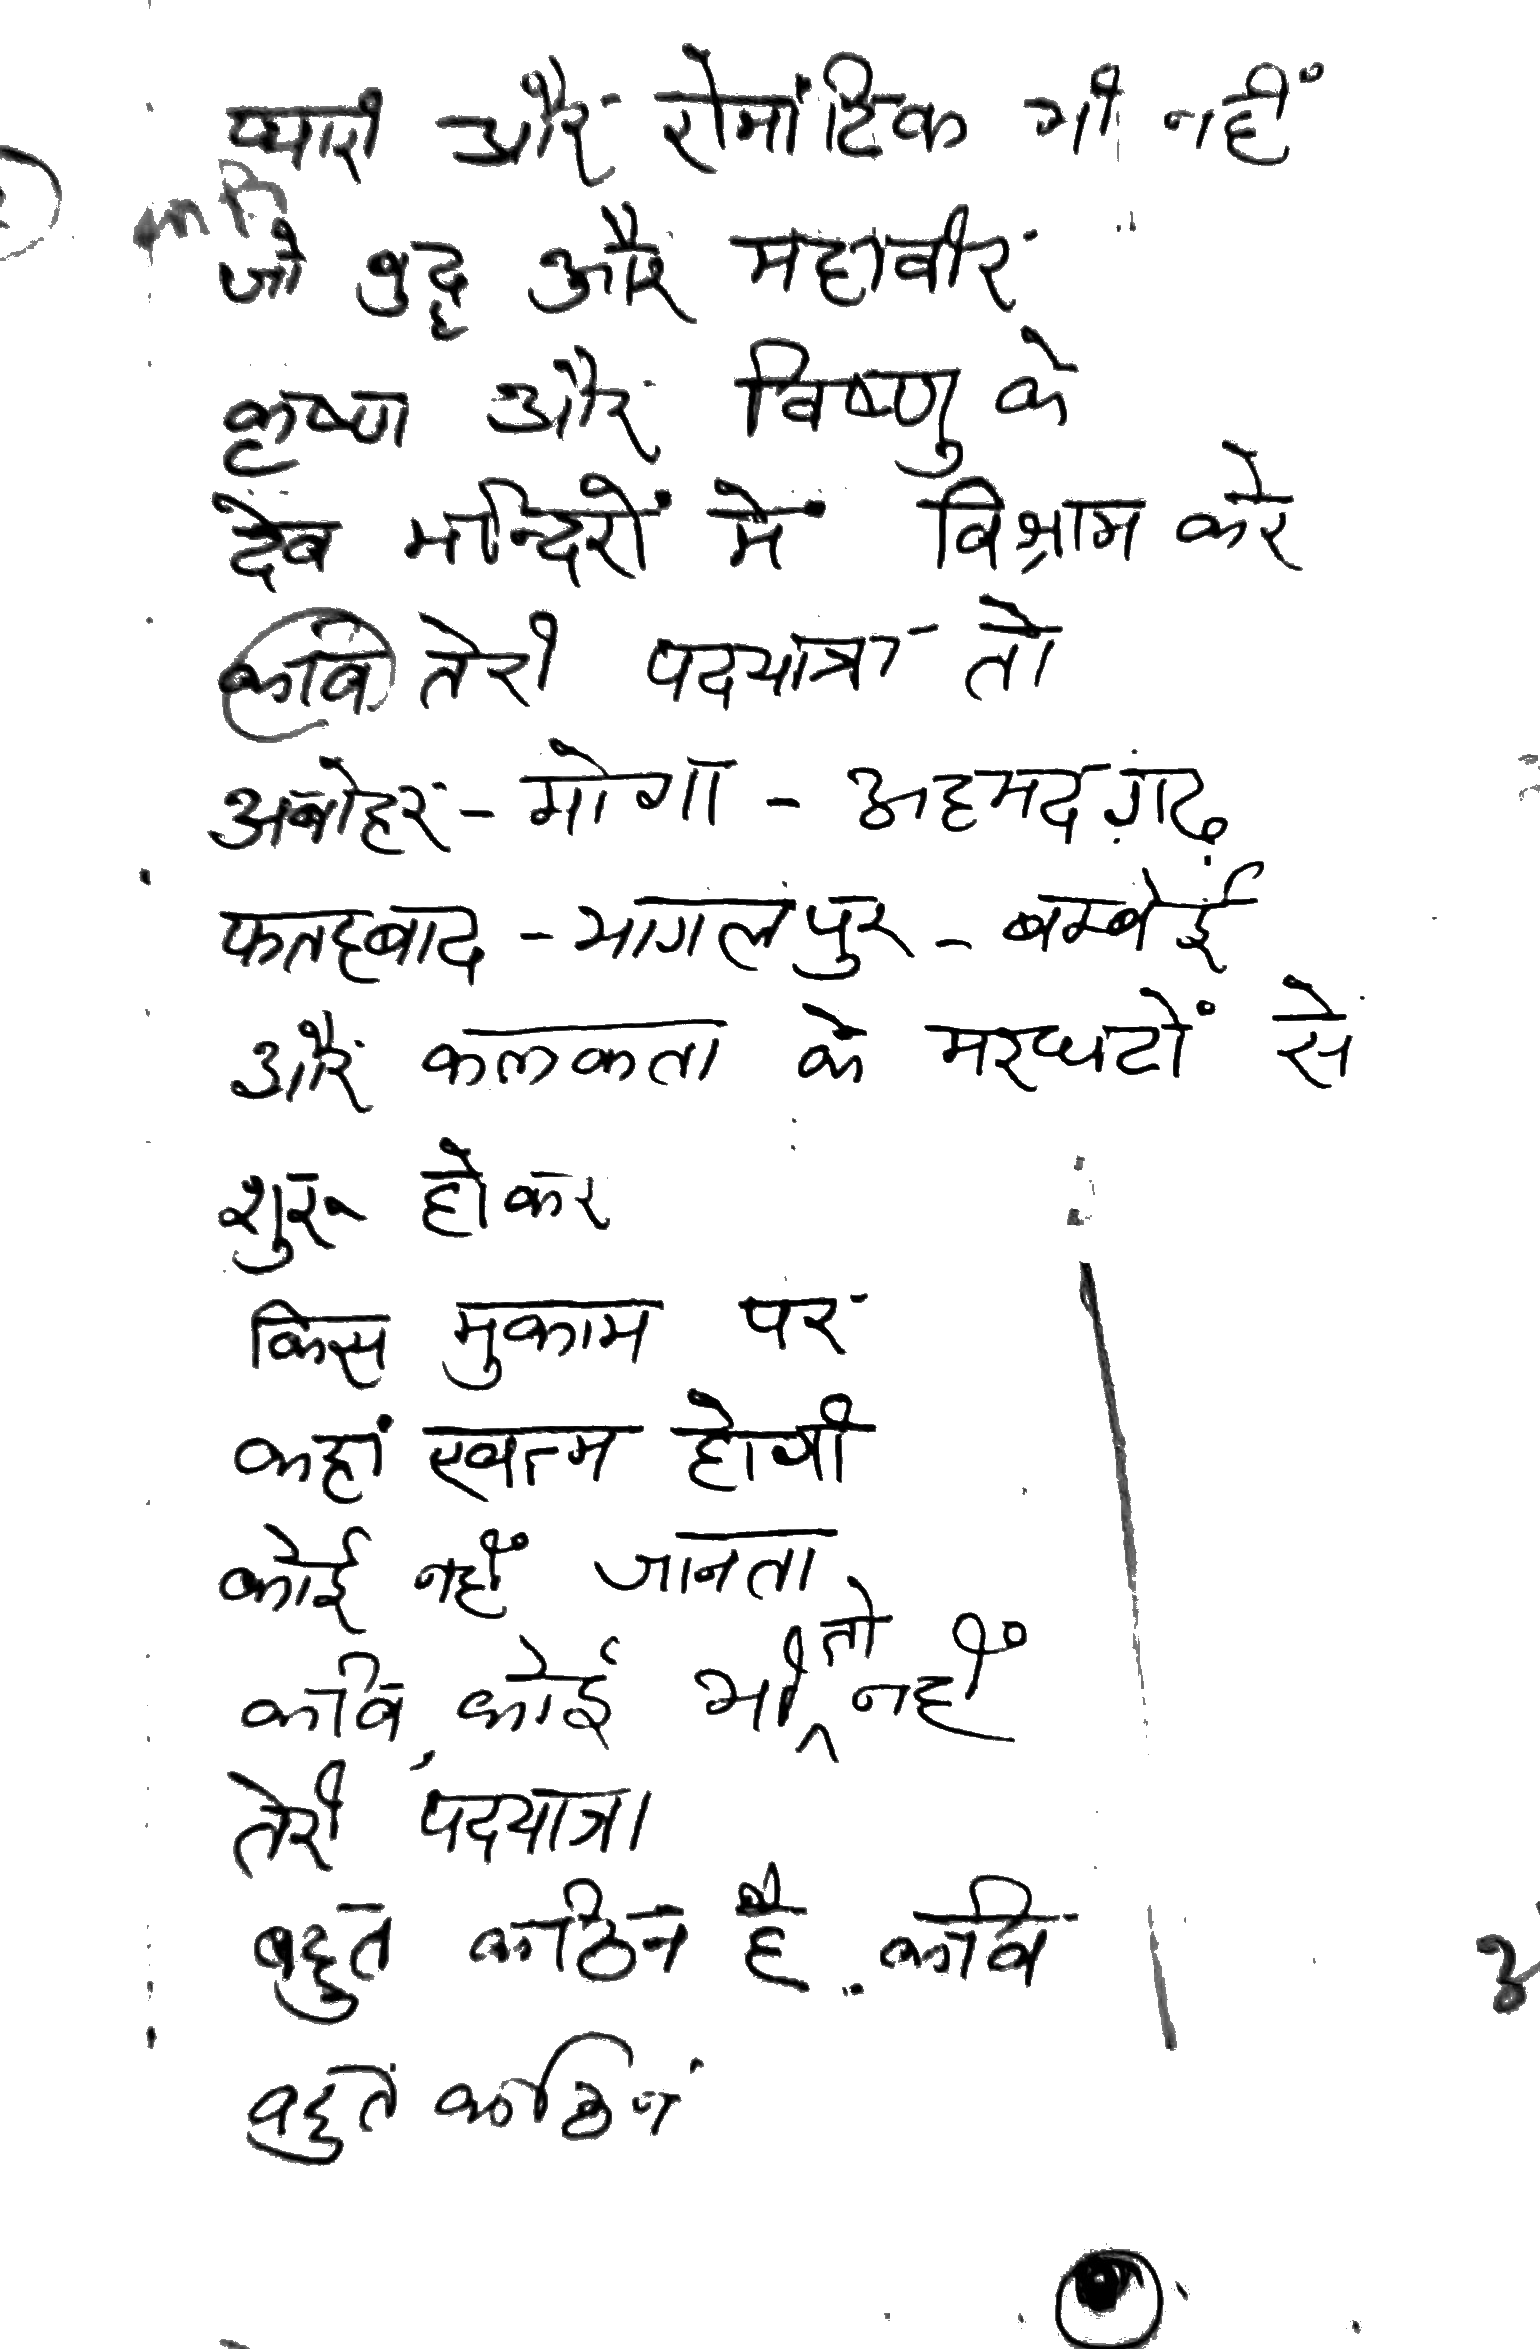 प्यारी और रोमांटिक भी नहीं
कि
जो बुद्ध और महावीर
कृष्ण और विष्णु के
देव मन्दिरों में विश्राम करे
कवि तेरी पदयात्रा तो
अबोहर - मोगा - अहमदगढ़
फतहबाद - भागलपुर - बम्बई
और कलकता के मरघटों से
शुरू होकर
किस मुकाम पर
कहां खत्म होगी
कोई नहीं जानता
कवि, कोई भी तो नहीं
तेरी पदयात्रा
बहुत कठिन है.. कवि
बहुत कठिन